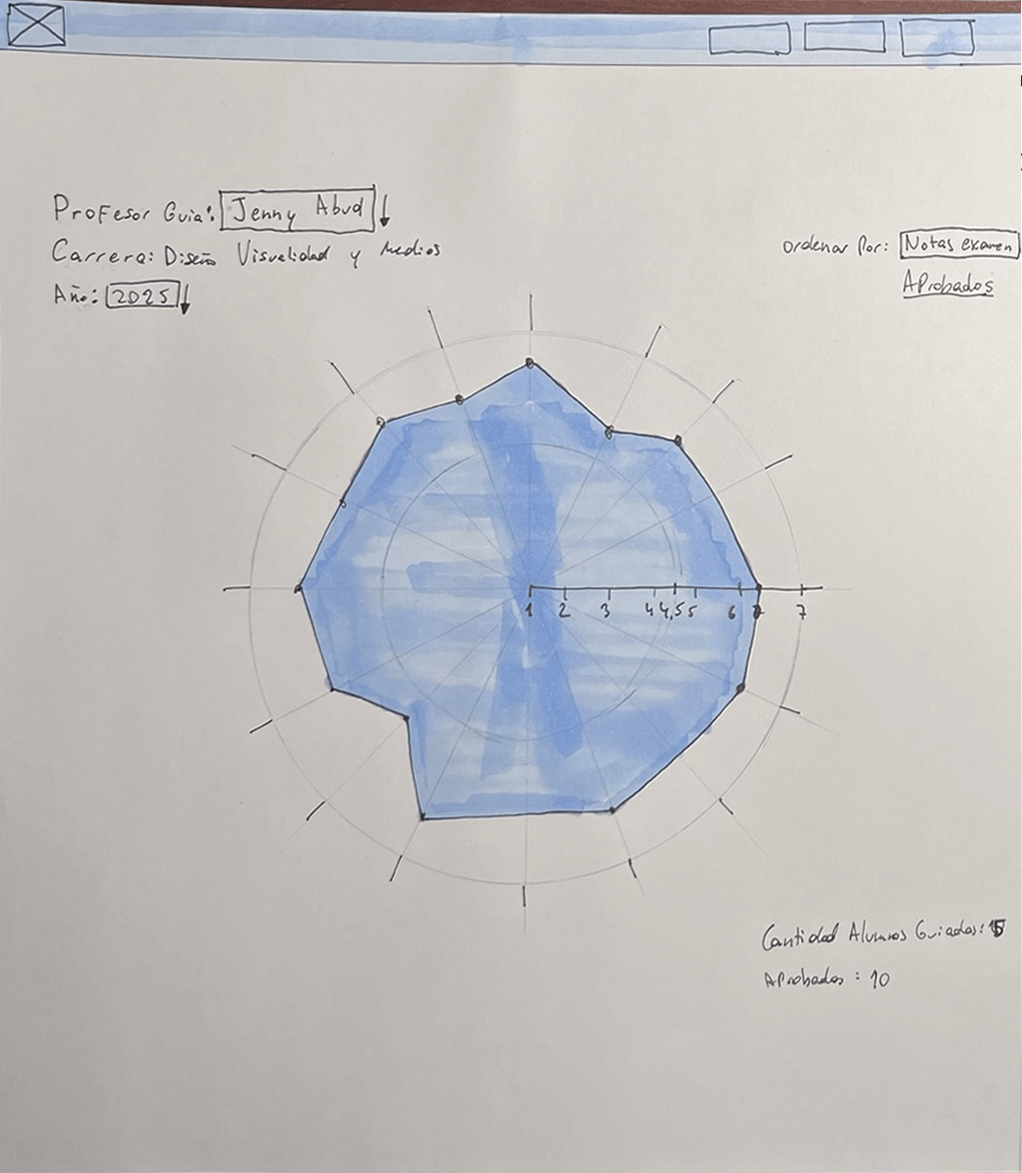 Profesor Guia: Jenny Abud
Carrera: Diseño Visualidad y Medios
Año: 2025
Ordenar Por: Notas examen
Aprobados
1 2 3 4 4,5 5 6 7
Cantidad Alumnos Guiados: 15
Aprobados: 10